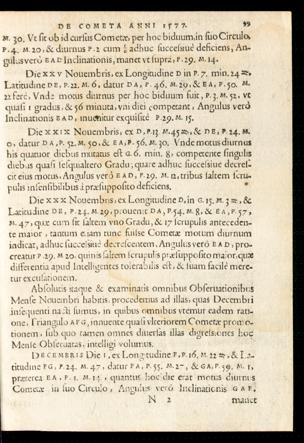 DE COMETA ANNI 1577. 99
M. 30. Vt sit ob id cursus Cometæ, per hoc biduum, in suo Circulo,
P. 4. M. 20, & diurnus P. 2 cum adhuc successiuè deficiens, An-
gulus verò EAD Inclinationis, manet vt suprà, P. 29. M. 14.
Die XXV Nouembris, ex Longitudine D in P. 7. min. 24 ♒,
Latitudine DE, P. 22. M. 6, datur DA, P. 46, M. 29, & EA, P. 50. M.
22 ferè. Vnde motus diurnus per hoc biduum fuit, P. 3. M. 52, vt
quasi 1 gradus, & 56 minuta, vni diei competant, Angulus verò
Inclinationis EAD, inuenitur exquisitè P. 29. M. 15.
Die XXIX Nouembris, ex D, P. 13. M. 45 ♒, & DE, P. 24. M.
0, datur DA, P. 52. M. 50, & EA, P. 56. M. 30. Vnde motus diurnus
his quatuor diebus mutatus est G. 6. min. 8, competitque singulis
diebus quasi sesquialtero Gradu, quare adhuc successiuè decres-
cit eius motus. Angulus verò EAD, P. 29. M. 12, tribus saltem scru-
pulis insensibilibus à præsupposito deficiens.
Die XXX Nouembris, ex Longitudine D, in G. 15. M. 3 ♒, &
Latitudine DE, P. 24. M. 29, prouenit DA, P. 54, M. 8, & EA, P. 57,
M. 47, quæ cum sit saltem vno Gradu, & 17 scrupulis anteceden-
te maior, tantum etiam eo die fuisse Cometæ motum diurnum
indicat, adhuc successiuè decrescentem. Angulus verò EAD, pro-
creatur P. 29. M. 20. quinis saltem scrupulis præsupposito maior, quæ
differentia apud Intelligentes tolerabilis est, & suam facilè mere-
tur excusationem.
Absolutis itaque & examinatis omnibus Obseruationibus
Mense Nouembri habitis, procedemus ad illas, quas Decembri
insequenti nacti sumus, in quibus omnibus vtemur eadem rati-
one, Triangulo AFG, innuente quasi vlteriorem Cometæ promo-
tionem, sub quo tamen omnes diuersas illas digressiones hoc
Mense Obseruatas, intelligi volumus.
DECEMBRIS Die 1, ex Longitudine F, P. 16. M. 22 ♒, & La-
titudine FG, P. 24. M. 47, datur FA, P. 55. M. & GA, P. 59, M. 1,
præterea EA, P. 1. M. 14, quantus hoc die erat motus diurnus
Cometæ in suo Circulo, Angulus verò Inclinationis GAF,
N 2 manet